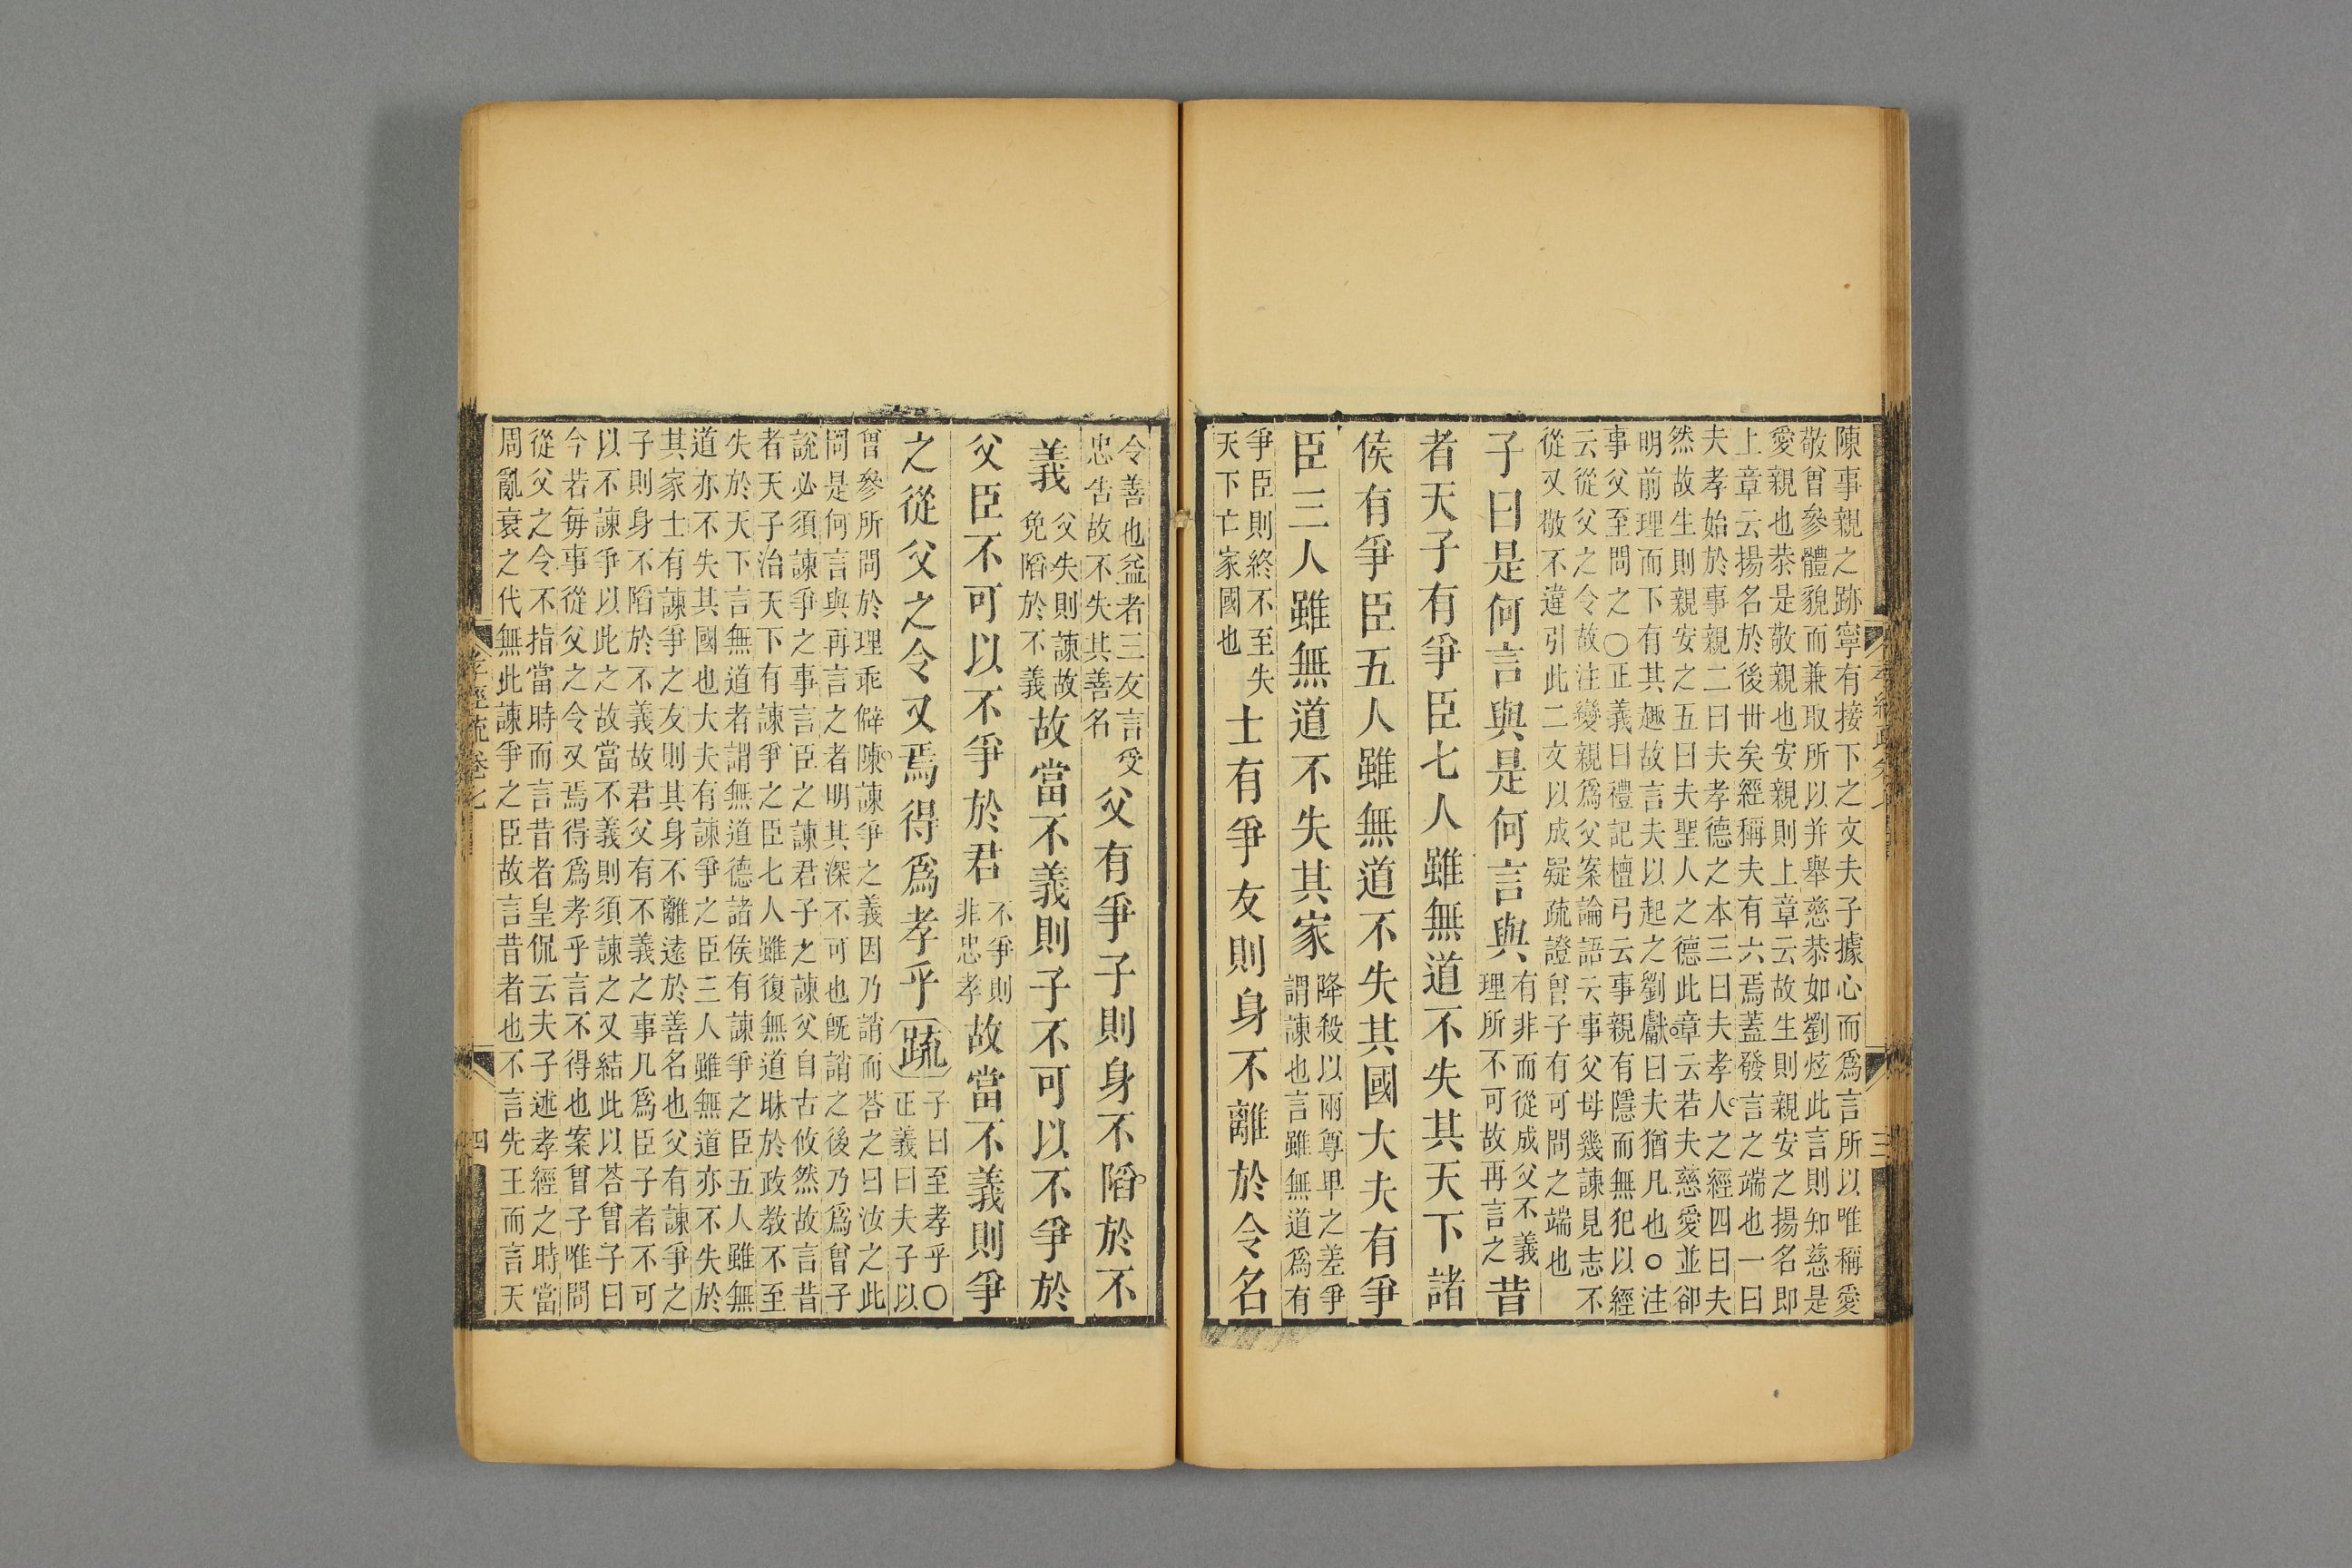 陳事親之跡寧有接下之文夫子據心而爲言所以唯稱愛
敬曾參體貌而兼取所以并舉慈恭如劉炫此言則知慈是
愛親也恭是敬親也安親則上章云故生則親安之揚名即
上章云揚名於後世矣經稱夫有六焉蓋發言之端也一曰
夫孝始於事親二曰夫孝德之本三曰夫孝人之經四曰夫
然故生則親安之五曰夫聖人之德此章云若夫慈愛並卻
明前理而下有其趣故言夫以起之劉瓛曰夫猶凡也○注
事父至問之○正義曰禮記檀弓云事親有隱而無犯以經
云從父之令故注變親爲父案論語云事父母幾諫見志不
從又敬不違引此二文以成疑疏證曾子有可問之端也
子曰是何言與是何言與
有非而從成父不義
理所不可故再言之
昔
者天子有爭臣七人雖無道不失其天下諸
侯有爭臣五人雖無道不失其國大夫有爭
臣三人雖無道不失其家
降殺以兩尊卑之差爭
謂諫也言雖無道爲有
爭臣則終不至失
天下亡家國也
士有爭友則身不離於令名
令善也益者三友言受
忠告故不失其善名
父有爭子則身不䧟於不
義
父失則諫故
免䧟於不義
故當不義則子不可以不爭於
父臣不可以不爭於君
不爭則
非忠孝
故當不義則爭
之從父之令又焉得爲孝乎
疏
子曰至孝乎○
正義曰夫子以
曾參所問於理乖僻陳諫爭之義因乃誚而荅之曰汝之此
問是何言與再言之者明其深不可也旣誚之後乃爲曾子
說必須諫爭之事言臣之諫君子之諫父自古攸然故言昔
者天子治天下有諫爭之臣七人雖復無道昧於政教不至
失於天下言無道者謂無道德諸侯有諫爭之臣五人雖無
道亦不失其國也大夫有諫爭之臣三人雖無道亦不失於
其家士有諫爭之友則其身不離遠於善名也父有諫爭之
子則身不䧟於不義故君父有不義之事凡爲臣子者不可
以不諫爭以此之故當不義則須諫之又結此以荅曾子曰
今若每事從父之令又焉得爲孝乎言不得也案曾子唯問
從父之令不指當時而言昔者皇侃云夫子述孝經之時當
周亂衰之代無此諫爭之臣故言昔者也不言先王而言天
孝經疏卷七
三
四